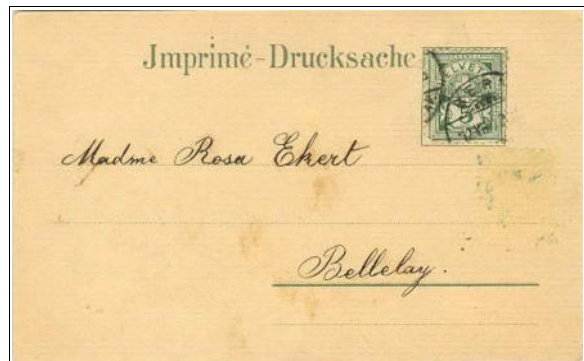 Imprimé-Drucksache
HELVETIA
Madme Rosa Ekert
Bellelay.